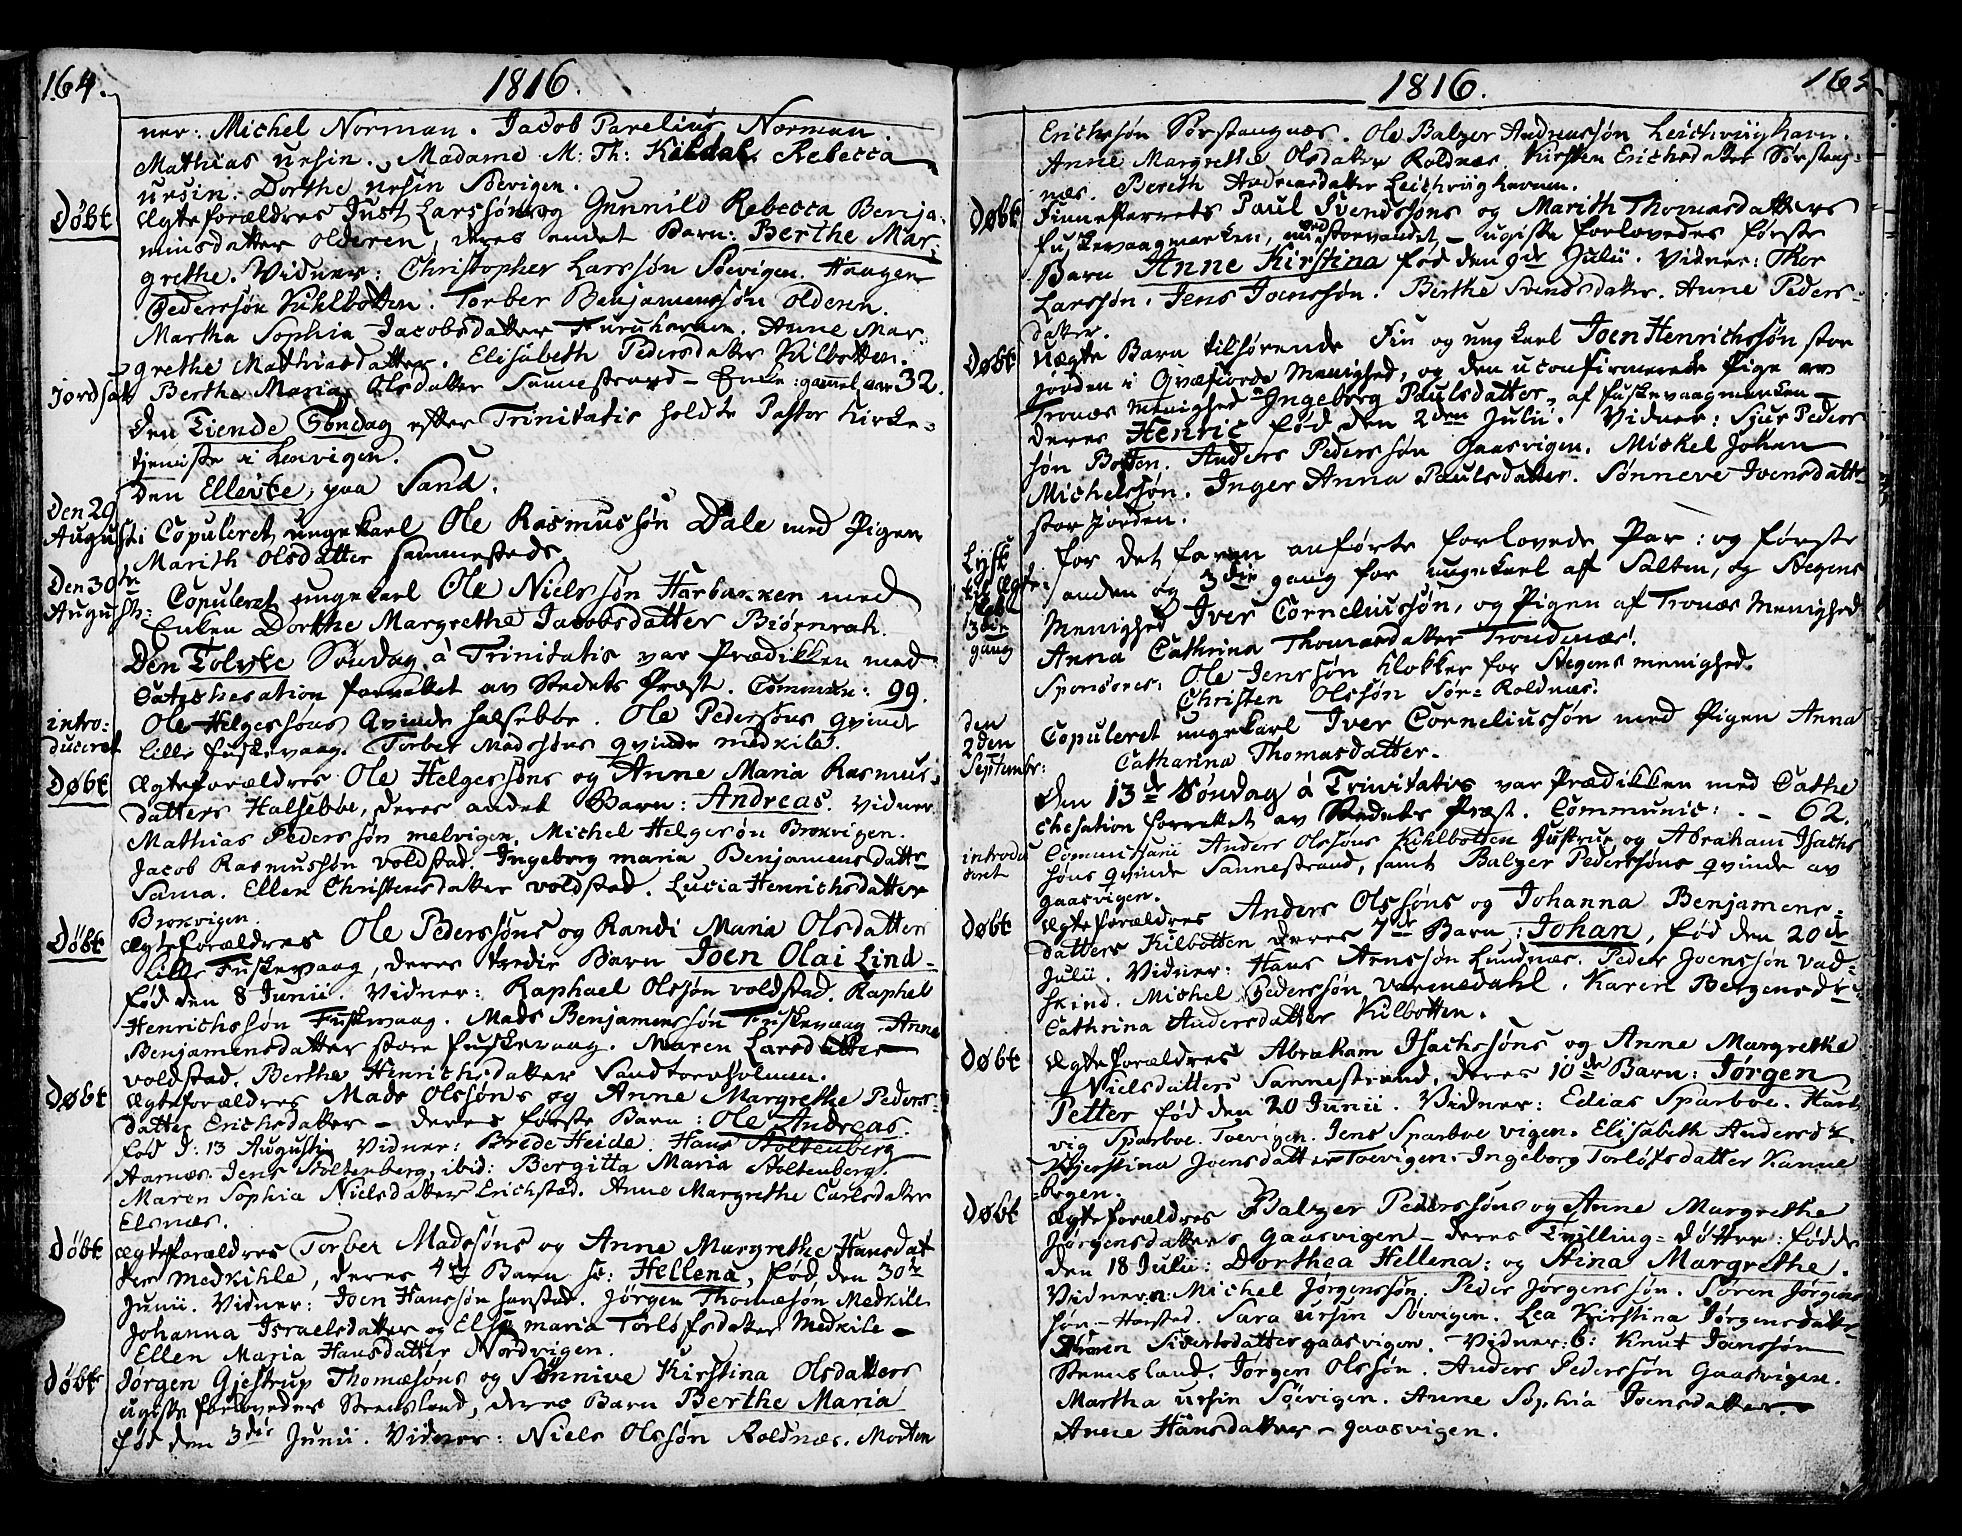 164. 1816.
ner: Michel Norman. Jacob Parelius Norman.
Mathias Ursin. Madame M: Th: Kildal. Rebecca
Ursin. Dorthe Ursin Sørvigen.
Døbt Ægteforældres Just Larssøns og Gunnild Rebecca Benja-
minsdatter Olderen, deres andet Barn: Berthe Mar-
grethe. Vidner: Christopher Larssøn Sørvigen. Haagen
Pederssøn Kihlbotten. Torber Benjamenssøn Olderen.
Martha Sophia Jacobsdatter. Anne Mar-
grethe Mathiasdatter. Elisabeth Pedersdatter Kilbotten.
Jordsat Berthe Maria Olsdatter Sannestrand – Enke: gammel aar 32.
Den Tiende Søndag efter Trinitatis holdte Pastor Kirke-
tjeniste i Lenvigen.
Den Ellevte, paa Sand.
Den 29 Augusti Copuleret ungekarl Ole Rasmussøn Dale med Pigen
Marith Olsdatter sammesteds.
Den 30te Augusti: Copuleret ungekarl Ole Nielssøn Harbakken med
Enken Dorthe Margrethe Jacobsdatter Biørnrah.
Den Tolvte Søndag à Trinitatis var Prædikken med
Catechesation forrettet av Stedets Præst. Commun: 99.
intro: duceret Ole Helgessøns Qvinde Halsebøe. Ole Pederssøns qvinde
Lille Fuskevaag. Torber Madssøns qvinde Medkile.
Døbt Ægteforældres Ole Helgessøns og Anne Maria Rasmus-
datters Halsebøe, deres andet Barn: Andreas. Vidner
Mathias Pederssøn Melvigen. Michel Helgesøn Brokvigen.
Jacob Rasmussøn Voldstad. Ingeborg Maria Benjamensdatter
Sama. Ellen Christensdatter Voldstad. Lucia Henrichsdatter
Brokvigen.
Døbt Ægteforældres Ole Pederssøns og Randi Maria Olsdatter
Lille Fuskevaag, deres tredie Barn Joen Olai Lind-
født den 8 Junii. Vidner: Raphael Olssøn Voldstad. Raphel
Henrichssøn Fuskevaag. Mads Benjamenssøn Fuskevaag. Anne
Benjamensdatter store Fuskevaag. Maren Larsdatter
Voldstad. Berthe Henrichsdatter Sandtorvholmen.
Døbt Ægteforældres Mads Olssøns og Anne Margrethe Peders-
datter Erichsdatter – deres første Barn: Ole Andreas.
fød d: 13 Augustii. Vidner: Brede Heide. Hans Stoltenberg
Aarnæs. Jens Stoltenberg, ibid: Bergitta Maria Stoltenberg.
Maren Sophia Nielsdatter Erichstad. Anne Margrethe Carlsdatter
Elsnæs.
Døbt Ægteforældres Torber Madssøns og Anne Margrethe Hansdat
ter Medkihle, deres 4de Barn Hellena, fød den 30te
Junii. Vidner: Joen Hanssøn Harstad. Jørgen Thomæsøn Medkile
Johanna Israelsdatter og Else Maria Torlofsdatter Medkile –
Ellen Maria Hansdatter Nordvigen.
Døbt Jørgen Giestrup Thomæsøns og Sønnive Kirstina Olsdatters
ugifte forlovedes Stensland, deres Barn Berthe Maria
fød den 3die Junii. Vidner: Niels Olssøn Roldnæs. Morten
1816. 165.
Erichssøn Sørstangnæs. Ole Balzer Andreassøn Leichvighavn.
Anne Margrethe Olsdatter Roldnæs. Kirsten Erichsdatter Sørstang-
næs. Bereth Andreasdatter Leichvighavnen.
Døbt Finneparrets Paul Svendssøns og Marith Thomasdatters
Fuskevaagmarken, ved Storvandet – ugifte forlovedes første
Barn Anne Kirstina fød den 9de Julii. Vidner: Thor
Larssøn. Jens Joenssøn. Berthe Svendsdatter. Anne Peders-
datter.
Døbt Uægte Barn tilhørende Fin og ungkarl Joen Henrichssøn Stor
jorden i Qvæfiords Menighed, og den uconfirmerede Pige av
Tronæs Menighed Ingeborg Paulsdatter, af Fuskevaagmarken –
deres Henric fød den 2den Julii. Vidner: Sjur Peders
søn Botten. Anders Pederssøn Gaasvigen. Mickel Johan
Michelssøn. Inger Anna Paulsdatter. Sønneve Joensdatter
Storjorden.
Lyst til Ægte- skab 3die gang for det foran anførte forlovede Par: og første
anden og 3die gang for ungekarl af Salten, og Stegens
Menighed Iver Corneliussøn, og Pigen af Tronæs Menighed
Anna Cathrina Thomasdatter Trondenæs.
Sponsores: Ole Jenssøn Klokker for Stegens menighed.
Christen Olssøn Sør-Roldnæs.
den 2den Septembr: Copuleret ungekarl Iver Corneliussøn med Pigen Anna
Catharina Thomasdatter.
Den 13de Søndag à Trinitatis var Prædikken med Cathe
chesation forrettet av Stedets Præst. Communic: . – 62.
introdu ceret Anders Olssøns Kihlbotten Hustrue og Abraham Isachs
søns qvinde Sannestrand, samt Balzer Pederssøns qvinde av
Gaasvigen.
Døbt Ægteforældres Anders Olssøns og Johanna Benjamens-
datters Kilbotten deres 7de Barn: Johan, fød den 20de
Julii. Vidner: Hans Arnssøn Lundnæs. Peder Joenssøn Vad-
skind. Michel Pederssøn Varmedahl. Karen Bergensdtr
Cathrina Andersdatter Kilbotten.
Døbt Ægteforældres Abraham Isachssøns og Anne Margrethe
Nielsdatters Sannestrand, deres 10de Barn: Jørgen
Petter fød den 20 Junii. Vidner: Edias Sparboe. Hart
vig Sparboe Toevigen. Jens Sparboe vigen. Elisabeth Andersdr.
Kjerstina Joensdatter Toevigen. Ingeborg Torlofsdatter Kanne
bogen.
Døbt Ægteforældres Balzer Pederssøns og Anne Margrethe
Jørgensdatters Gaasvigen – deres Tvilling-døttre: fødde
den 18 Julii: Dorthea Hellena: og Stina Margrethe.
Vidner: Michel Jørgenssøn. Peder Jørgenssøn. Søren Jørgens
søn – Harstad. Sara Ursin Sørvigen. Lea Kirstina Jørgensdatter
Maren Sivertsdatter Gaasvigen. Vidner: b: Knut Joenssøn
Stensland. Jørgen Olssøn. Anders Pederssøn Gaasvigen.
Martha Ursin Sørvigen. Anne Sophia Joensdatter. –
Anne Hansdatter – Gaasvigen.